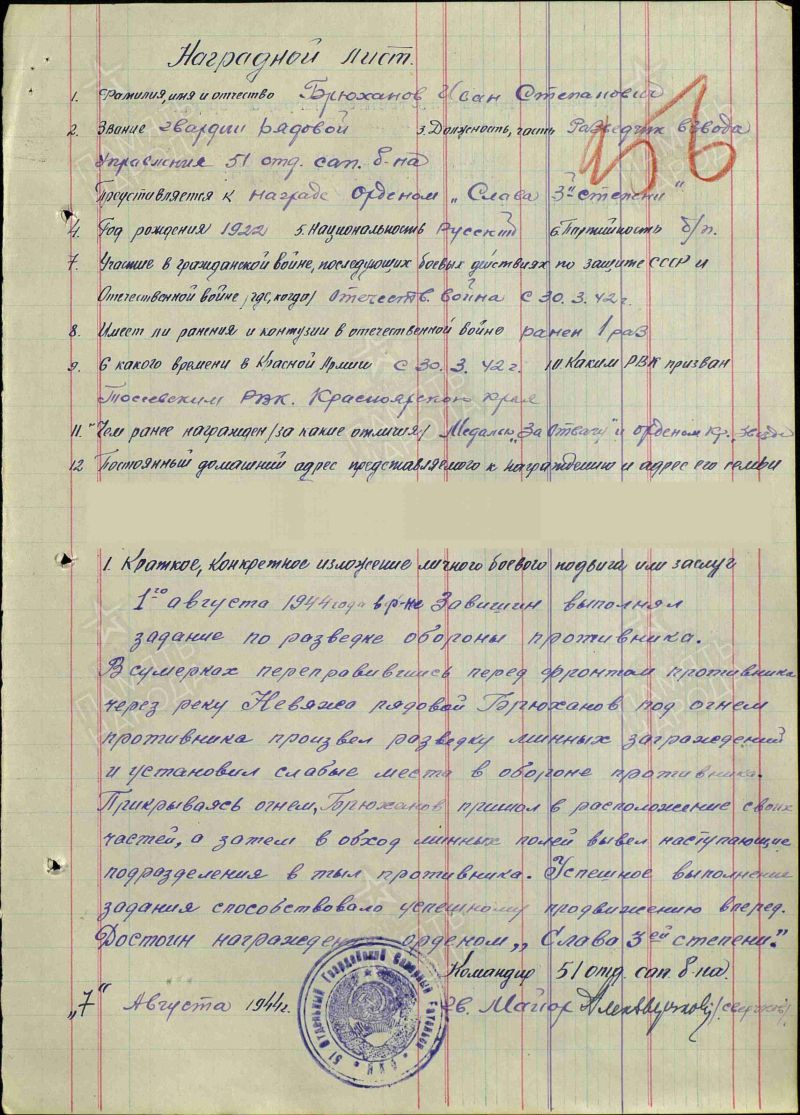 Наградной лист.
1. Фамилия, имя и отчество Брюханов Иван Степанович
2. Звание гвардии рядовой 3. Должность, часть Разведчик взвода
управления 51 отд. сап. б-на
256
Представляется к награде орденом „Слава 3й степени"
4. Год рождения 1922 5. Национальность Русский 6. Партийность б/п.
7. Участие в гражданской войне, последующих боевых действиях по защите СССР и
Отечественной войне /где, когда/ Отечеств. война с 30.3.42 г.
8. Имеет ли ранения и контузии в отечественной войне ранен 1 раз
9. С какого времени в Красной Армии с 30.3.42 г. 10. Каким РВК призван
Тосеевским РВК. Красноярского края
11. Чем ранее награжден /за какие отличия/ Медалью „За Отвагу" и орденом Кр. Звезда
12 Постоянный домашний адрес представляемого к награждению и адрес его семьи
1. Краткое, конкретное изложение личного боевого подвига или заслуг
1го августа 1944 года в р-не Завишин выполнял
задание по разведке обороны противника.
В сумерках переправившись перед фронтом противника
через реку Невяжа рядовой Брюханов под огнем
противника произвел разведку минных заграждений
и установил слабые места в обороне противника.
Прикрываясь огнем, Брюханов пришол в расположение своих
частей, а затем в обход минных полей вывел наступающие
подразделения в тыл противника. Успешное выполнение
задания способствовало успешному продвижению вперед.
Достоин награждения орденом „Слава 3ей степени."
Командир 51 отд. сап. б-на.
„7" Августа 1944г. Гв. Майор
51 Отдельный Гвардейский Саперный Батальон
ПАМЯТЬ НАРОДА
ПАМЯТЬ НАРОДА
ПАМЯТЬ НАРОДА
ПАМЯТЬ НАРОДА